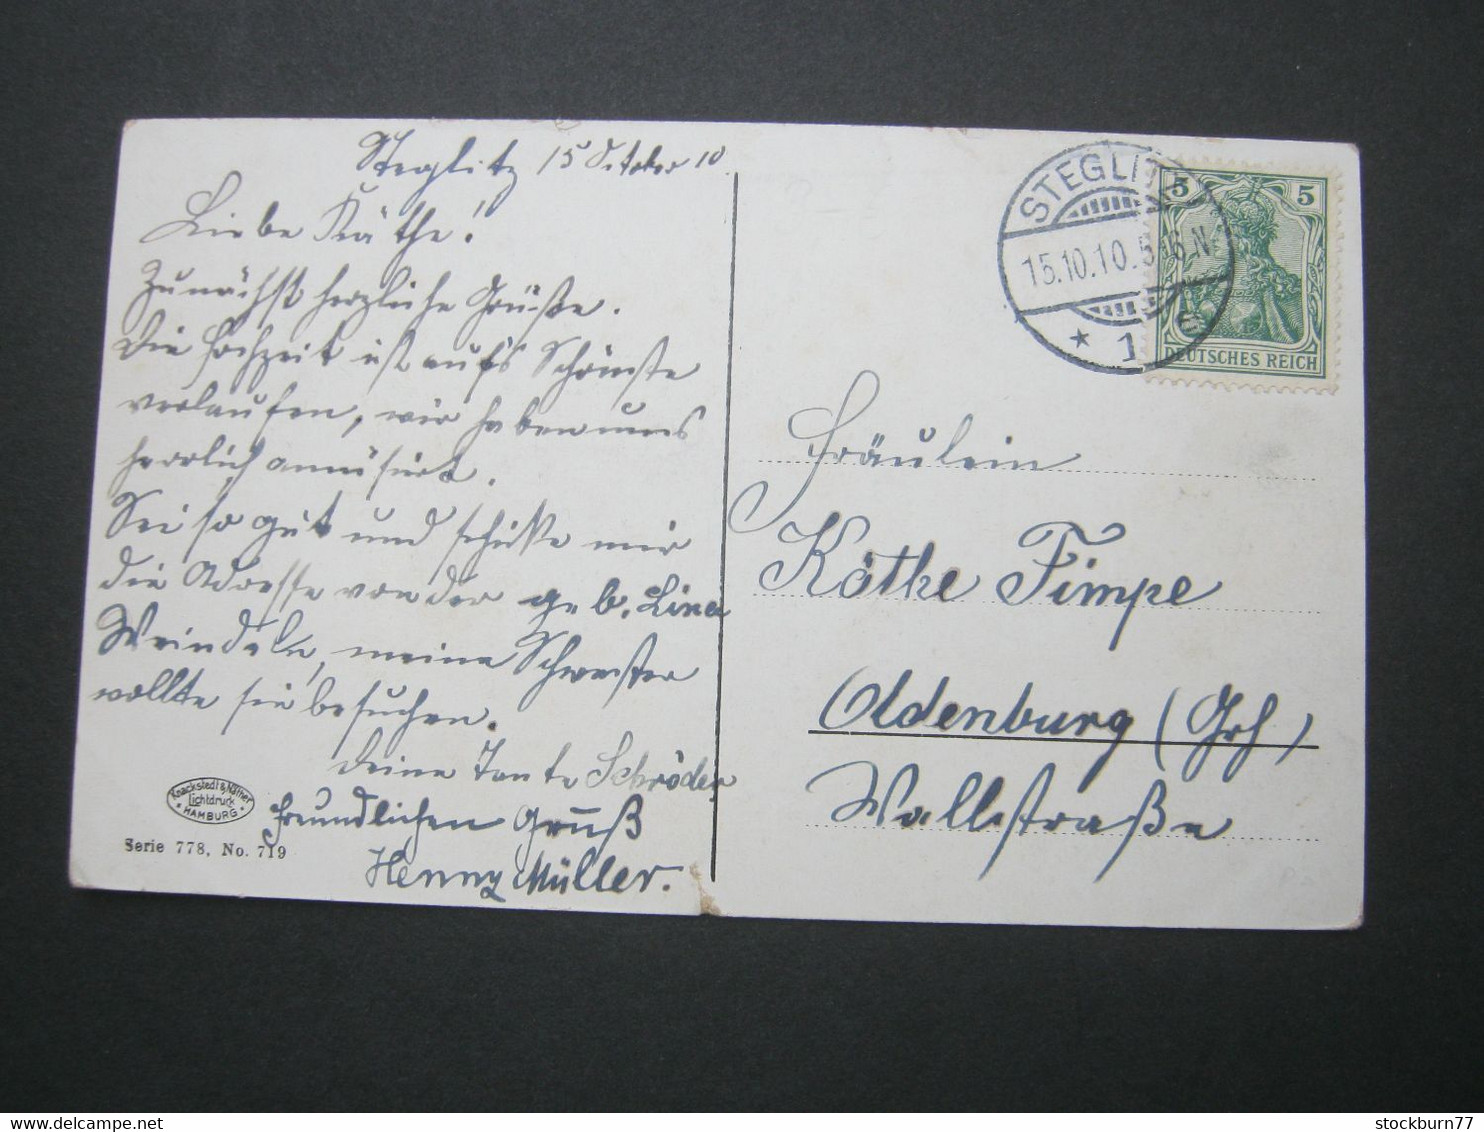 Steglitz 15 October 10
Liebe Käthe!
Zunächst herzliche Grüße.
Die Hochzeit ist auf's Schönste
verlaufen, wir haben uns
herrlich amüsirt.
Sei so gut und schicke mir
die Adresse von der geb. Lina
Weindeln, meine Schwester
wollte sie besuchen.
Deine Tante Schröder
Freundlichen Gruß
Henny Müller.
Knackstedt & Näther
Lichtdruck
HAMBURG
Serie 778, No. 719
STEGLITZ
15.10.10. 5-6.N.
* 1 c
5 5
DEUTSCHES REICH
Fräulein
Käthe Timpe
Oldenburg (Grh)
Wallstraße
stockburn77